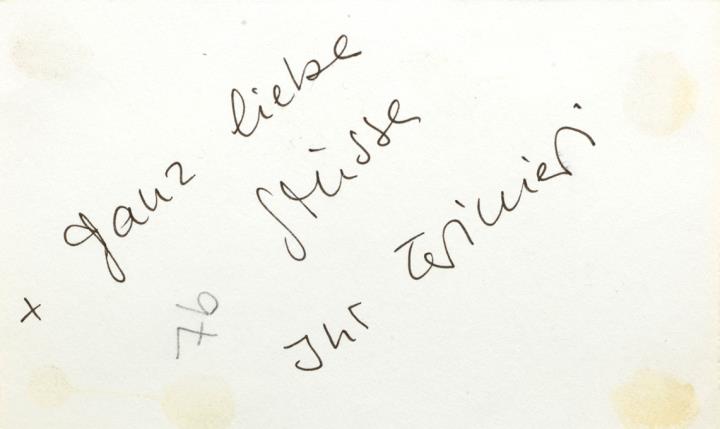 ganz liebe
Grüsse
Ihr
x
76